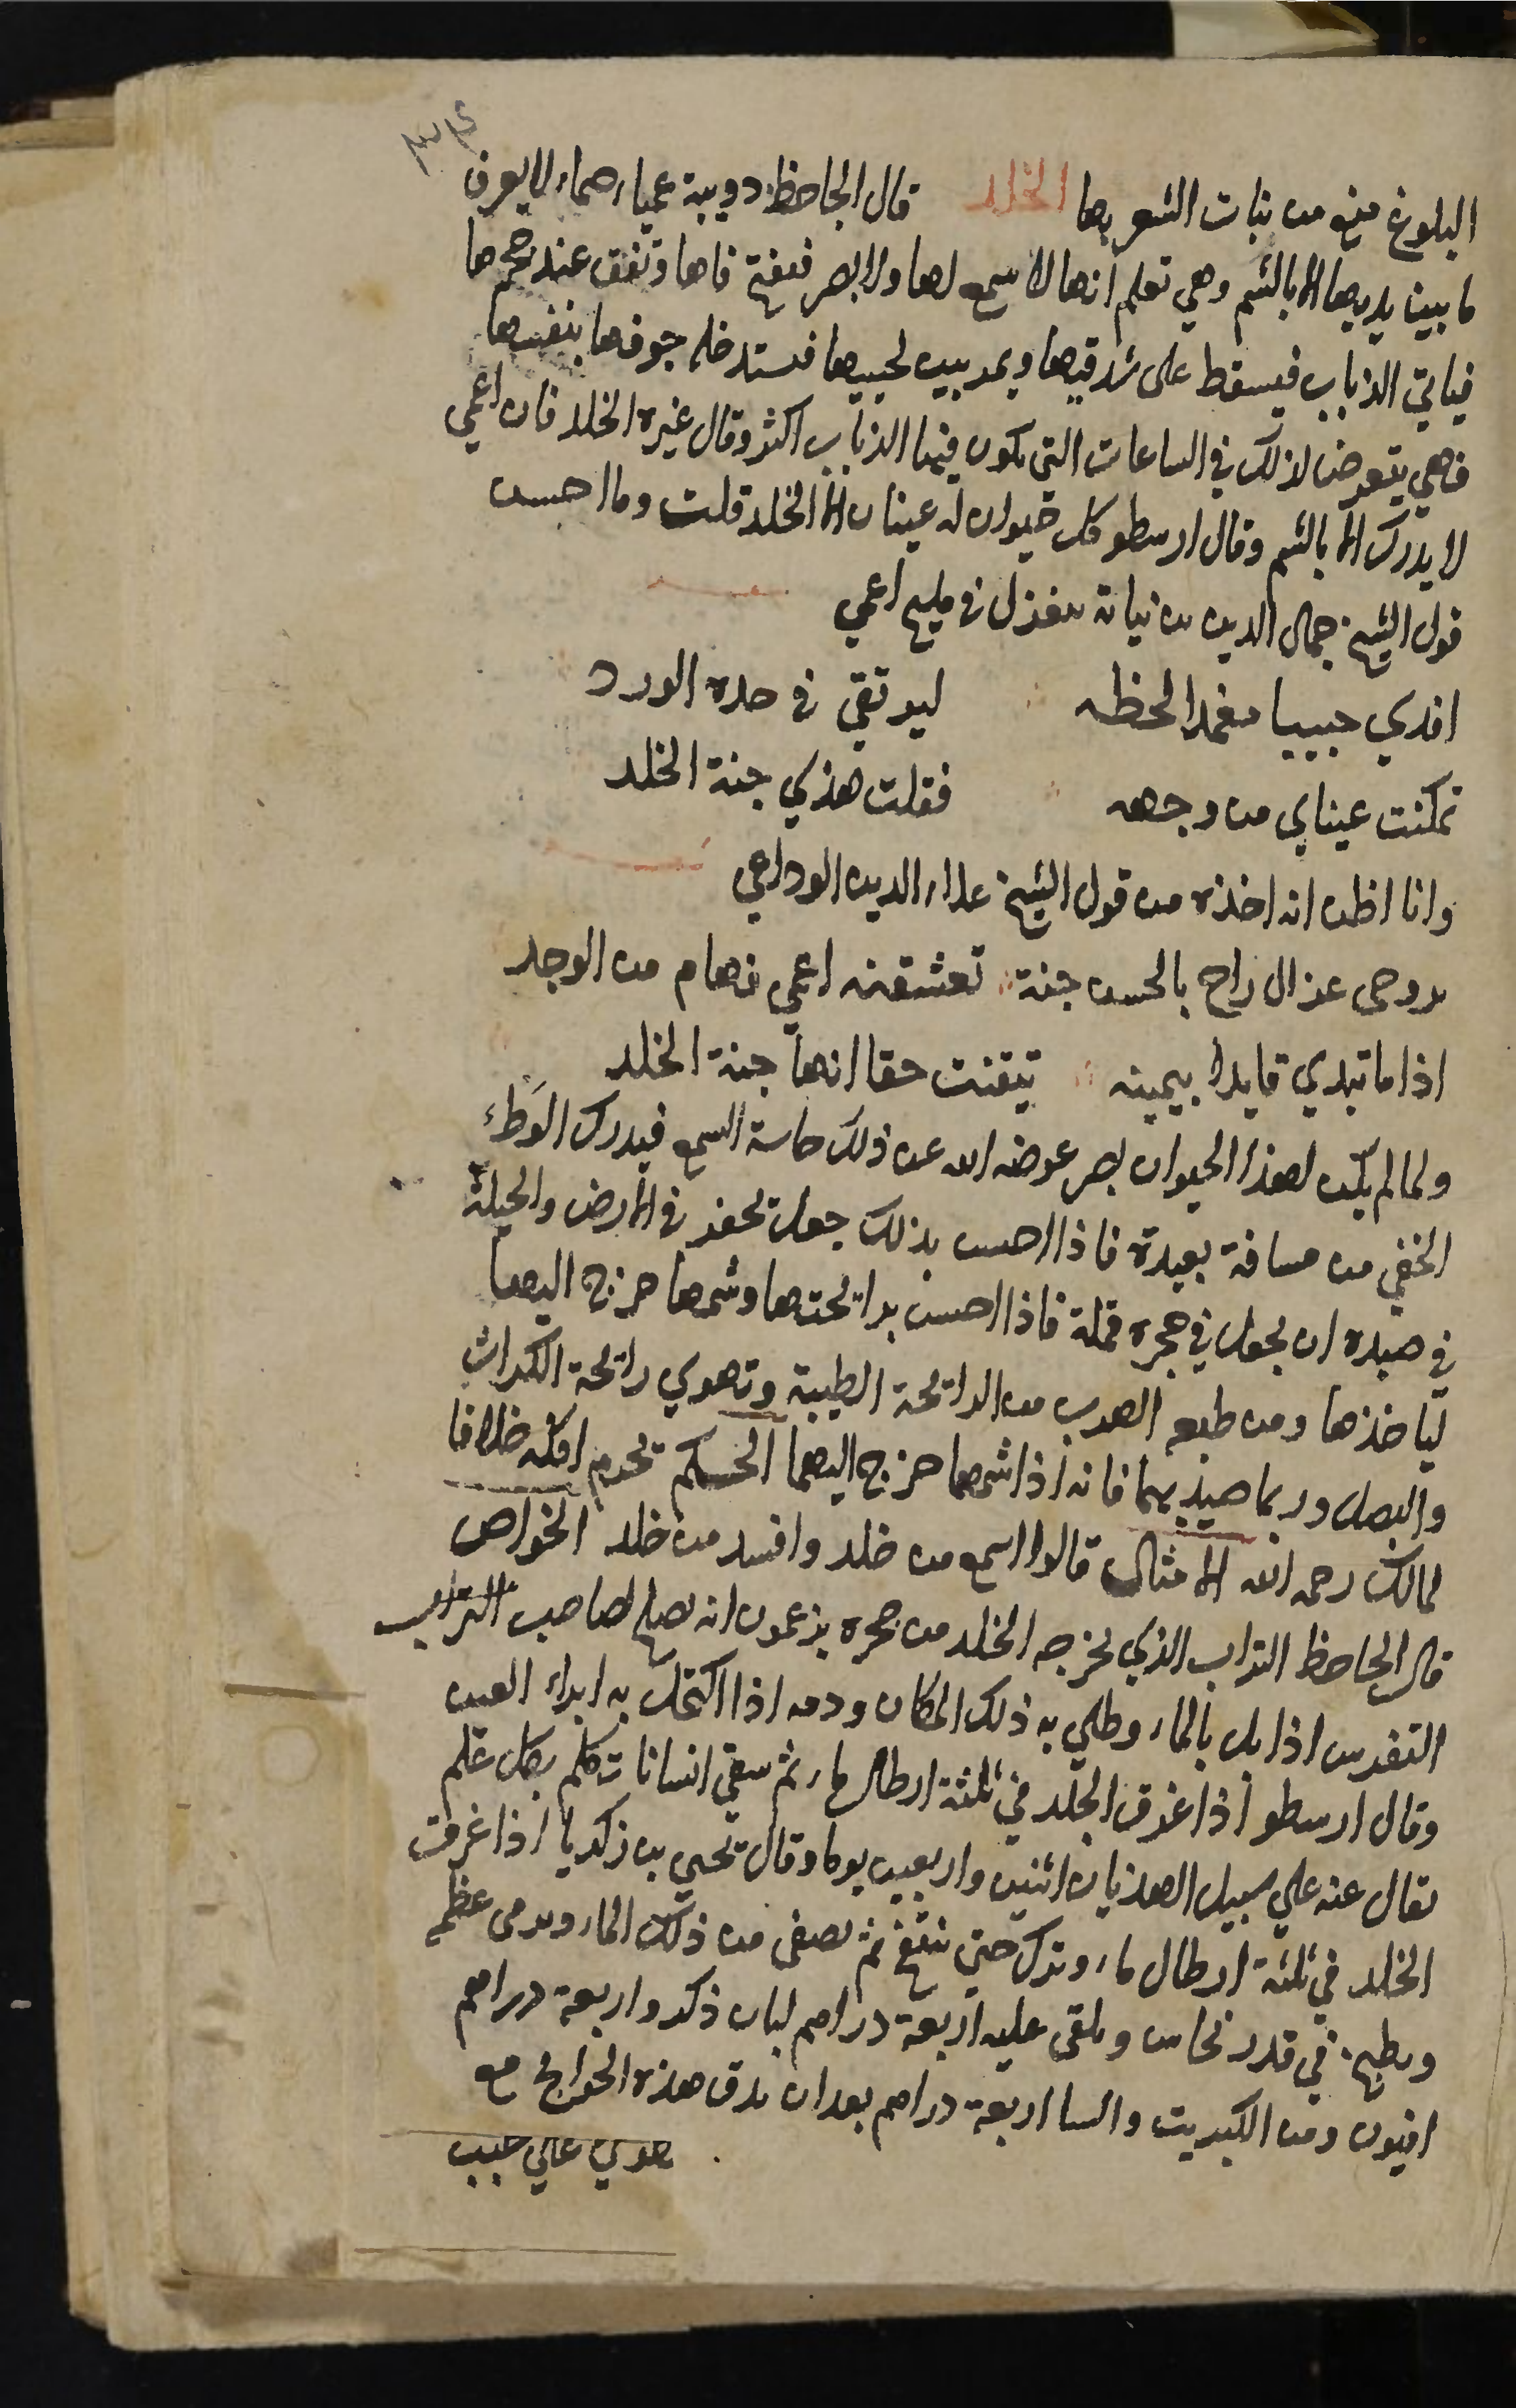 البلوغ منع من بنات الشعر بها الخلد قال الجاحظ دويبة عمياء صماء لا يعرف
ما بين يديها الا بالشم وهي تعلم انها لا سمع لها ولا بصر فتفتح فاها وتقف عند جحرها
فياتي الذباب فيسقط على شدقيها ويمر بين لحييها فتستدخله جوفها بنفسها
فهي يتعرض لذلك في الساعات التي يكون فيها الذباب اكثر وقال غيره الخلد فان اعمي
لا يدرك الا بالشم وقال ارسطو كل حيوان له عينان الا الخلد قلت وما احسن
قول الشيخ جمال الدين بن نباتة متغزل في مليح اعمي
افدي حبيبا مغمدا لحظه ليرتقي في خده الورد
تمكنت عيناي من وجهه فقلت هذي جنة الخلد
وانا اظن انه اخذه من قول الشيخ علاء الدين الوداعي
بروحى غزال راح بالحسن جنة تعشقته اعمي فهام من الوجد
اذا ما تبدي قايدا بيمينه تيقنت حقا انها جنة الخلد
ولما لم يكن لهذا الحيوان بصر عوضه الله عن ذلك حاسة السمع فيدرك الوطء
الخفي من مسافة بعيدة فاذا احس بذلك جعل يحفر في الارض والحيلة
في صيده ان يجعل في جحره قملة فاذا احس برائحتها وشمها خرج اليها
لياخذها ومن طبعه الهرب من الرائحة الطيبة وتهوي رائحة الكراث
والبصل وربما صيد بهما فانه اذا شمها خرج اليهما الحكم تحريم اكله خلافا
لمالك رحمه الله الامثال قالوا اسمع من خلد وافسد من خلد الخواص
قال الجاحظ التراب الذي يخرجه الخلد من جحره يزعمون انه يصلح لصاحب
النقرس اذا بل بالماء وطلي به ذلك المكان ودمه اذا اكتحل به ابراء العين
وقال ارسطو اذا غرق الخلد في ثلثة ارطال ماء ثم سقي انسانا تكلم بكل علم
يقال عنه علي سبيل الهذيان اثنين واربعين يوما وقال يحيي بن زكريا اذا غرقت
الخلد في ثلثة ارطال ماء وترك حتي ينتفخ ثم يصفى من ذلك الماء ويرمى عظمه
ويطبخ في قدر نحاس ويلقى عليه اربعة دراهم لبان ذكر واربعة دراهم
افيون ومن الكبريت والسا اربعة دراهم بعد ان يدق هذه الحوايج مع